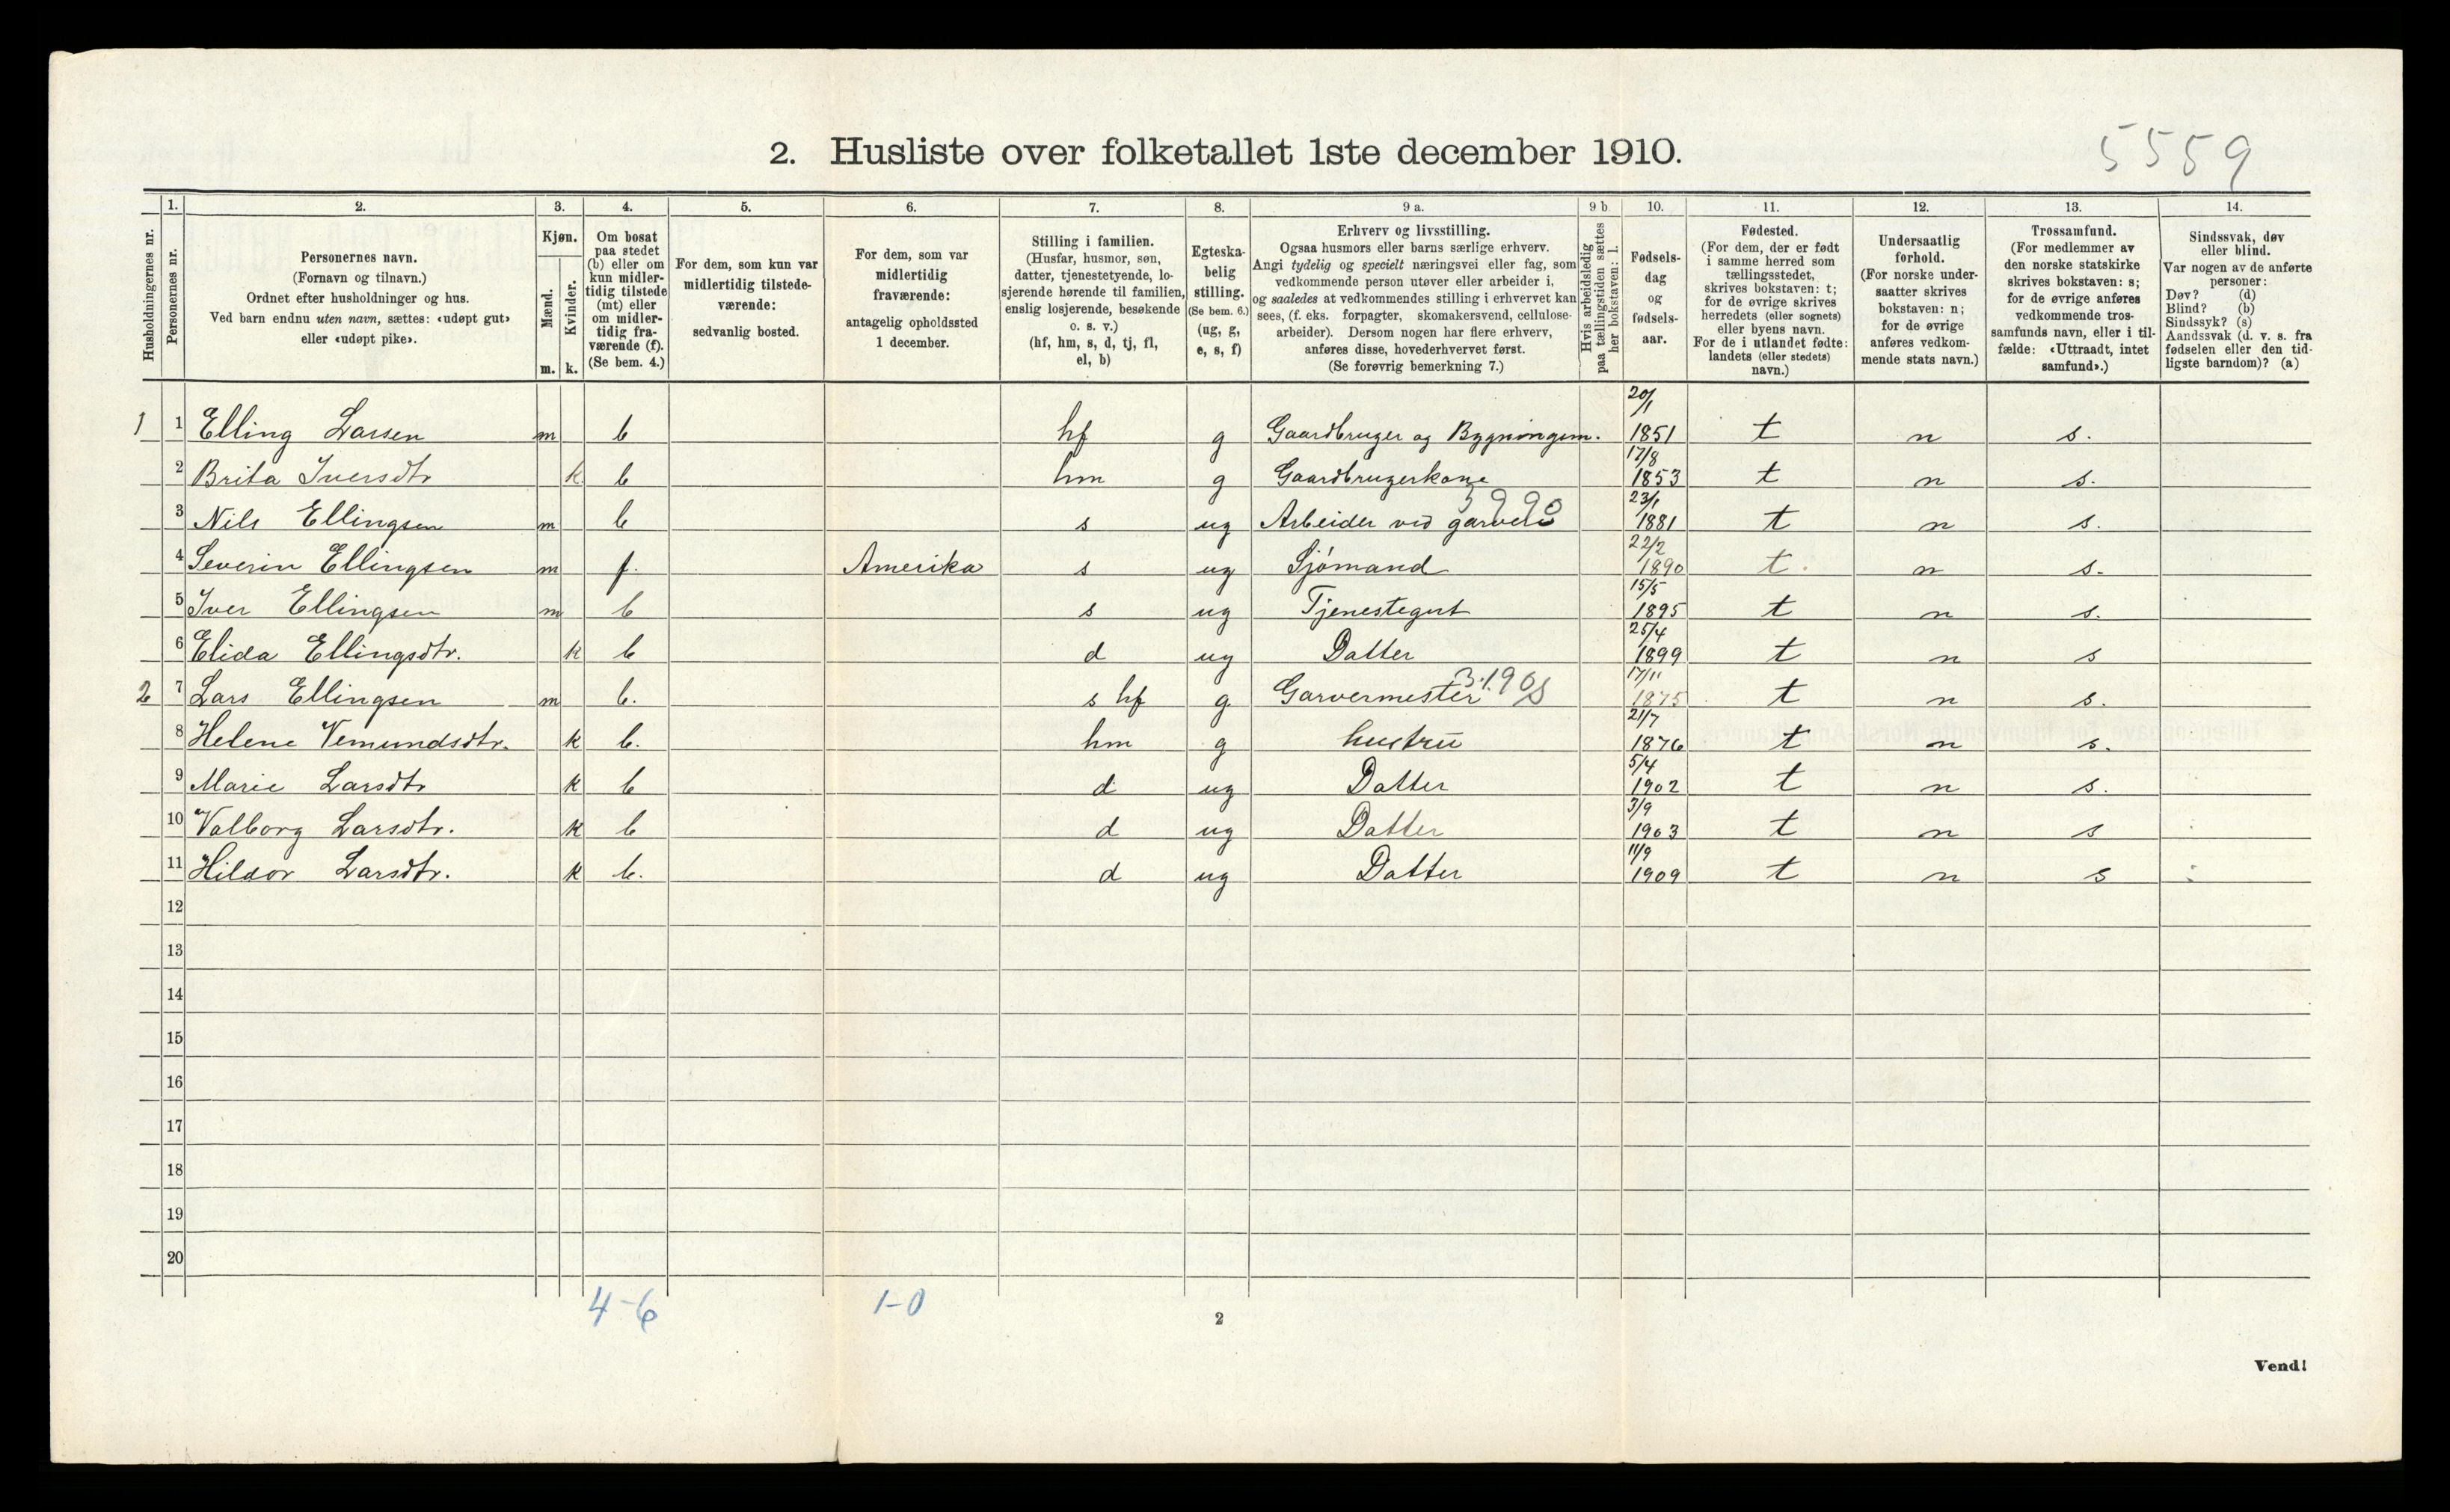 5559
2. Husliste over folketallet 1ste december 1910.
Husholdningernes nr.
1.
Personernes nr.
2.
Personernes navn.
(Fornavn og tilnavn.)
Ordnet efter husholdninger og hus.
Ved barn endnu uten navn, sættes: «udøpt gut»
eller «udøpt pike».
3.
Kjøn.
Mænd.
Kvinder.
m. k.
4.
Om bosat
paa stedet
(b) eller om
kun midler-
tidig tilstede
(mt) eller
om midler-
tidig fra-
værende (f).
(Se bem. 4.)
5.
For dem, som kun var
midlertidig tilstede-
værende:
sedvanlig bosted.
6.
For dem, som var
midlertidig
fraværende:
antagelig opholdssted
1 december.
7.
Stilling i familien.
(Husfar, husmor, søn,
datter, tjenestetyende, lo-
sjerende hørende til familien,
enslig losjerende, besøkende
o. s. v.)
(hf, hm, s, d, tj, fl,
el, b)
8.
Egteska-
belig
stilling.
(Se bem. 6.)
(ug, g,
e, s, f)
9 a.
Erhverv og livsstilling.
Ogsaa husmors eller barns særlige erhverv.
Angi tydelig og specielt næringsvei eller fag, som
vedkommende person utøver eller arbeider i,
og saaledes at vedkommendes stilling i erhvervet kan
sees, (f. eks. forpagter, skomakersvend, cellulose-
arbeider). Dersom nogen har flere erhverv,
anføres disse, hovederhvervet først.
(Se forøvrig bemerkning 7.)
9 b.
Hvis arbeidsledig
paa tællingstiden sættes
her bokstaven: l.
10.
Fødsels-
dag
og
fødsels-
aar.
11.
Fødested.
(For dem, der er født
i samme herred som
tællingsstedet,
skrives bokstaven: t;
for de øvrige skrives
herredets (eller sognets)
eller byens navn.
For de i utlandet fødte:
landets (eller stedets)
navn.)
12.
Undersaatlig
forhold.
(For norske under-
saatter skrives
bokstaven: n;
for de øvrige
anføres vedkom-
mende stats navn.)
13.
Trossamfund.
(For medlemmer av
den norske statskirke
skrives bokstaven: s;
for de øvrige anføres
vedkommende tros-
samfunds navn, eller i til-
fælde: «Uttraadt, intet
samfund».)
14.
Sindssvak, døv
eller blind.
Var nogen av de anførte
personer:
Døv? (d)
Blind? (b)
Sindssyk? (s)
Aandssvak (d. v. s. fra
fødselen eller den tid-
ligste barndom)? (a)
1 1 Elling Larsen m b hf g Gaardbruger og Bygningsm. 20/1 1851 t n s.
2 Brita Iversdtr k. b hm g Gaardbrugerkone 17/8 1853 t n s.
3 Nils Ellingsen m b s ug Arbeider ved garveri 23/1 1881 t n s.
4 Severin Ellingsen m f. Amerika s ug Sjømand 22/2 1890 t. n s.
5 Iver Ellingsen m b s ug Tjenestegut 15/5 1895 t n s.
6 Elida Ellingsdtr. k b d ug Datter 25/4 1899 t n s
2 7 Lars Ellingsen m b. s hf g Garvermester 17/11 1875 t n s.
8 Helene Vemundsdtr. k b. hm g hustru 21/7 1876 t n s.
9 Marie Larsdtr k b d ug Datter 5/4 1902 t n s.
10 Valborg Larsdtr. k b d ug Datter 3/9 1903 t n s
11 Hildor Larsdtr. k b. d ug Datter 11/9 1909 t n s
12
13
14
15
16
17
18
19
20
4-6 1-0
2
Vend!